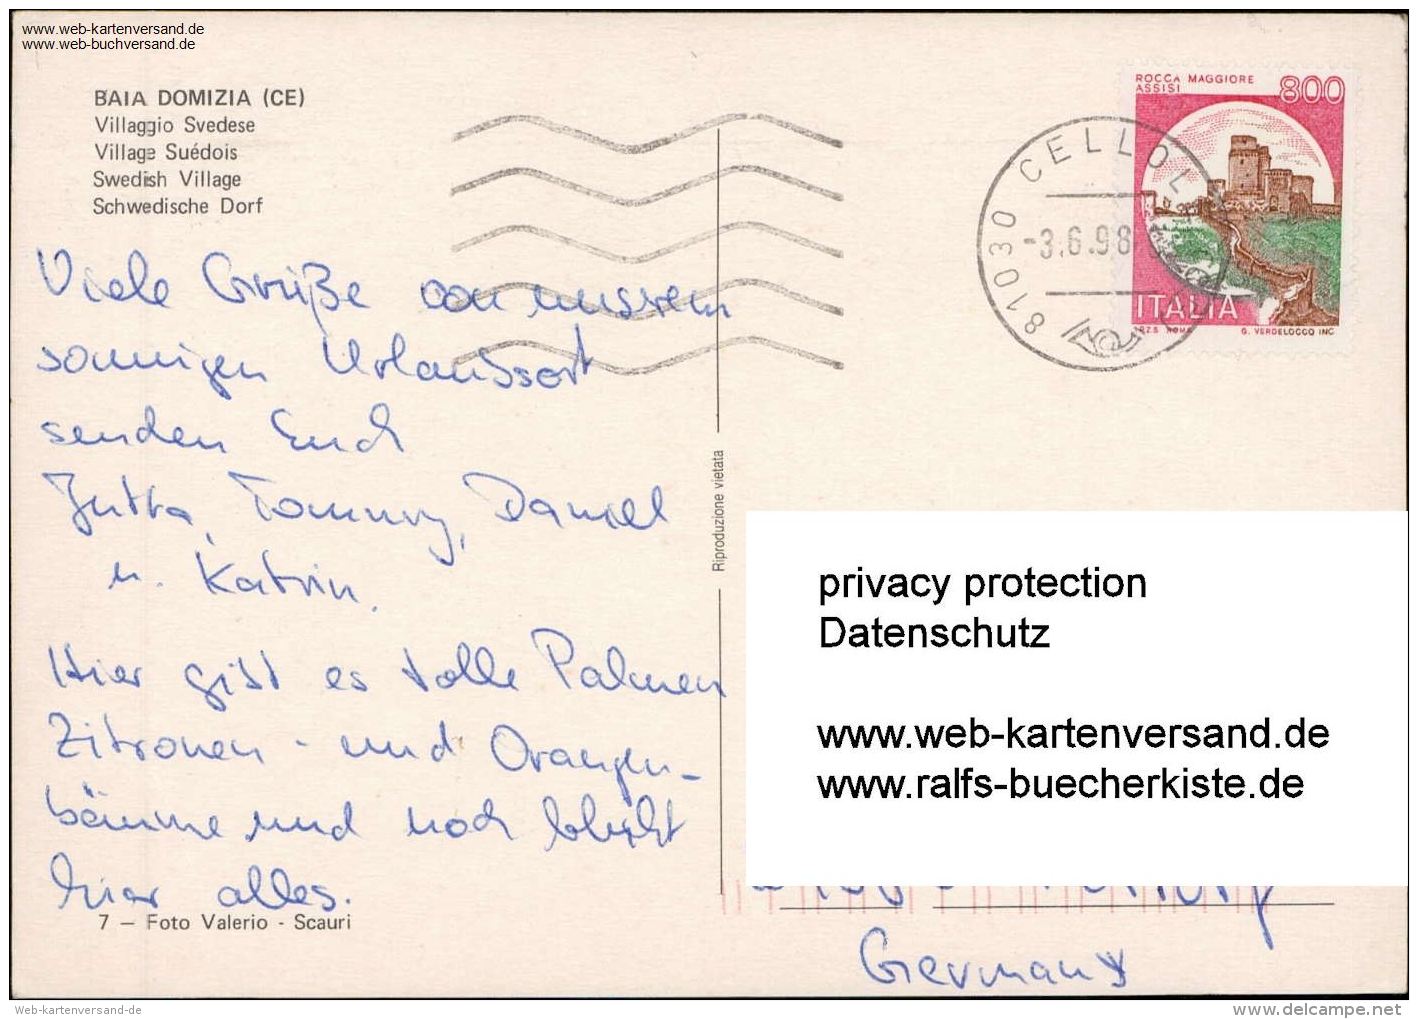 www.web-kartenversand.de
www.web-buchversand.de
BAIA DOMIZIA (CE)
Villaggio Svedese
Village Suédois
Swedish Village
Schwedische Dorf
ROCCA MAGGIORE
ASSISI
800
ITALIA
I.P.Z.S. ROMA
G. VERDELOCCO INC.
81030 CELLOL
-3.6.98
Viele Grüße von unserem
sonnigen Urlaubsort
senden Euch
Jutta, Tommy, Daniel
u. Katrin.
Hier gibt es tolle Palmen
Zitronen- und Orangen-
bäume und noch blüht
hier alles.
7 — Foto Valerio - Scauri
Riproduzione vietata
privacy protection
Datenschutz
www.web-kartenversand.de
www.ralfs-buecherkiste.de
Germany
Web-kartenversand-de
www.delcampe.net